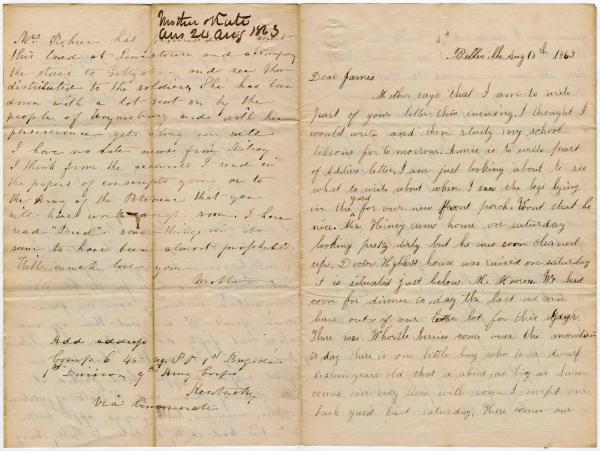 Mother & Kate
Ans 24 Aug 1863
Mrs Rohrer has
this load at Lewistown and accompany
the stores to Gettysburg and see them
distributed to the soldiers, She has been
down with a lot sent on by the
people of Waynesburg and with her
perseverance gets along very well
I have no late news from Nelson
I think from the accounts I read in
the papers of conscripts going on to
the Army of the Potomac that you
will have work enough soon. I have
read "Dred" some things in it
seem to have been almost prophetic
With much love your
Mother
Add address
Comp G 45 Reg P V 1st Brigade
Division 9th Army Corps
Kentucky
Via Cincinnati
Belleville Aug 18th 1863
Dear James
Mother says that I am to write
part of your letter this evening. I thought I
would write and then study my school
lessons for tomorrow. Annie is to write part
of Eddies letter, I am just looking about to see
what to write about when I saw the logs lying
in the yard for our new front porch Wont that be
nice. Mr Kiney came home on saturday
looking pretty dirty but he was soon cleaned
up. Doctor house was raised on saturday
it is situated just below Mr Moores. We had
corn for dinner to day the last we can
have out of our lot for this year.
There was Whortle berries come over the mountain
to day there is one little boy who is a dwarf
sixteen years old that is about as big as I am
comes over every time with some I swept our
back yard last saturday, Here comes our